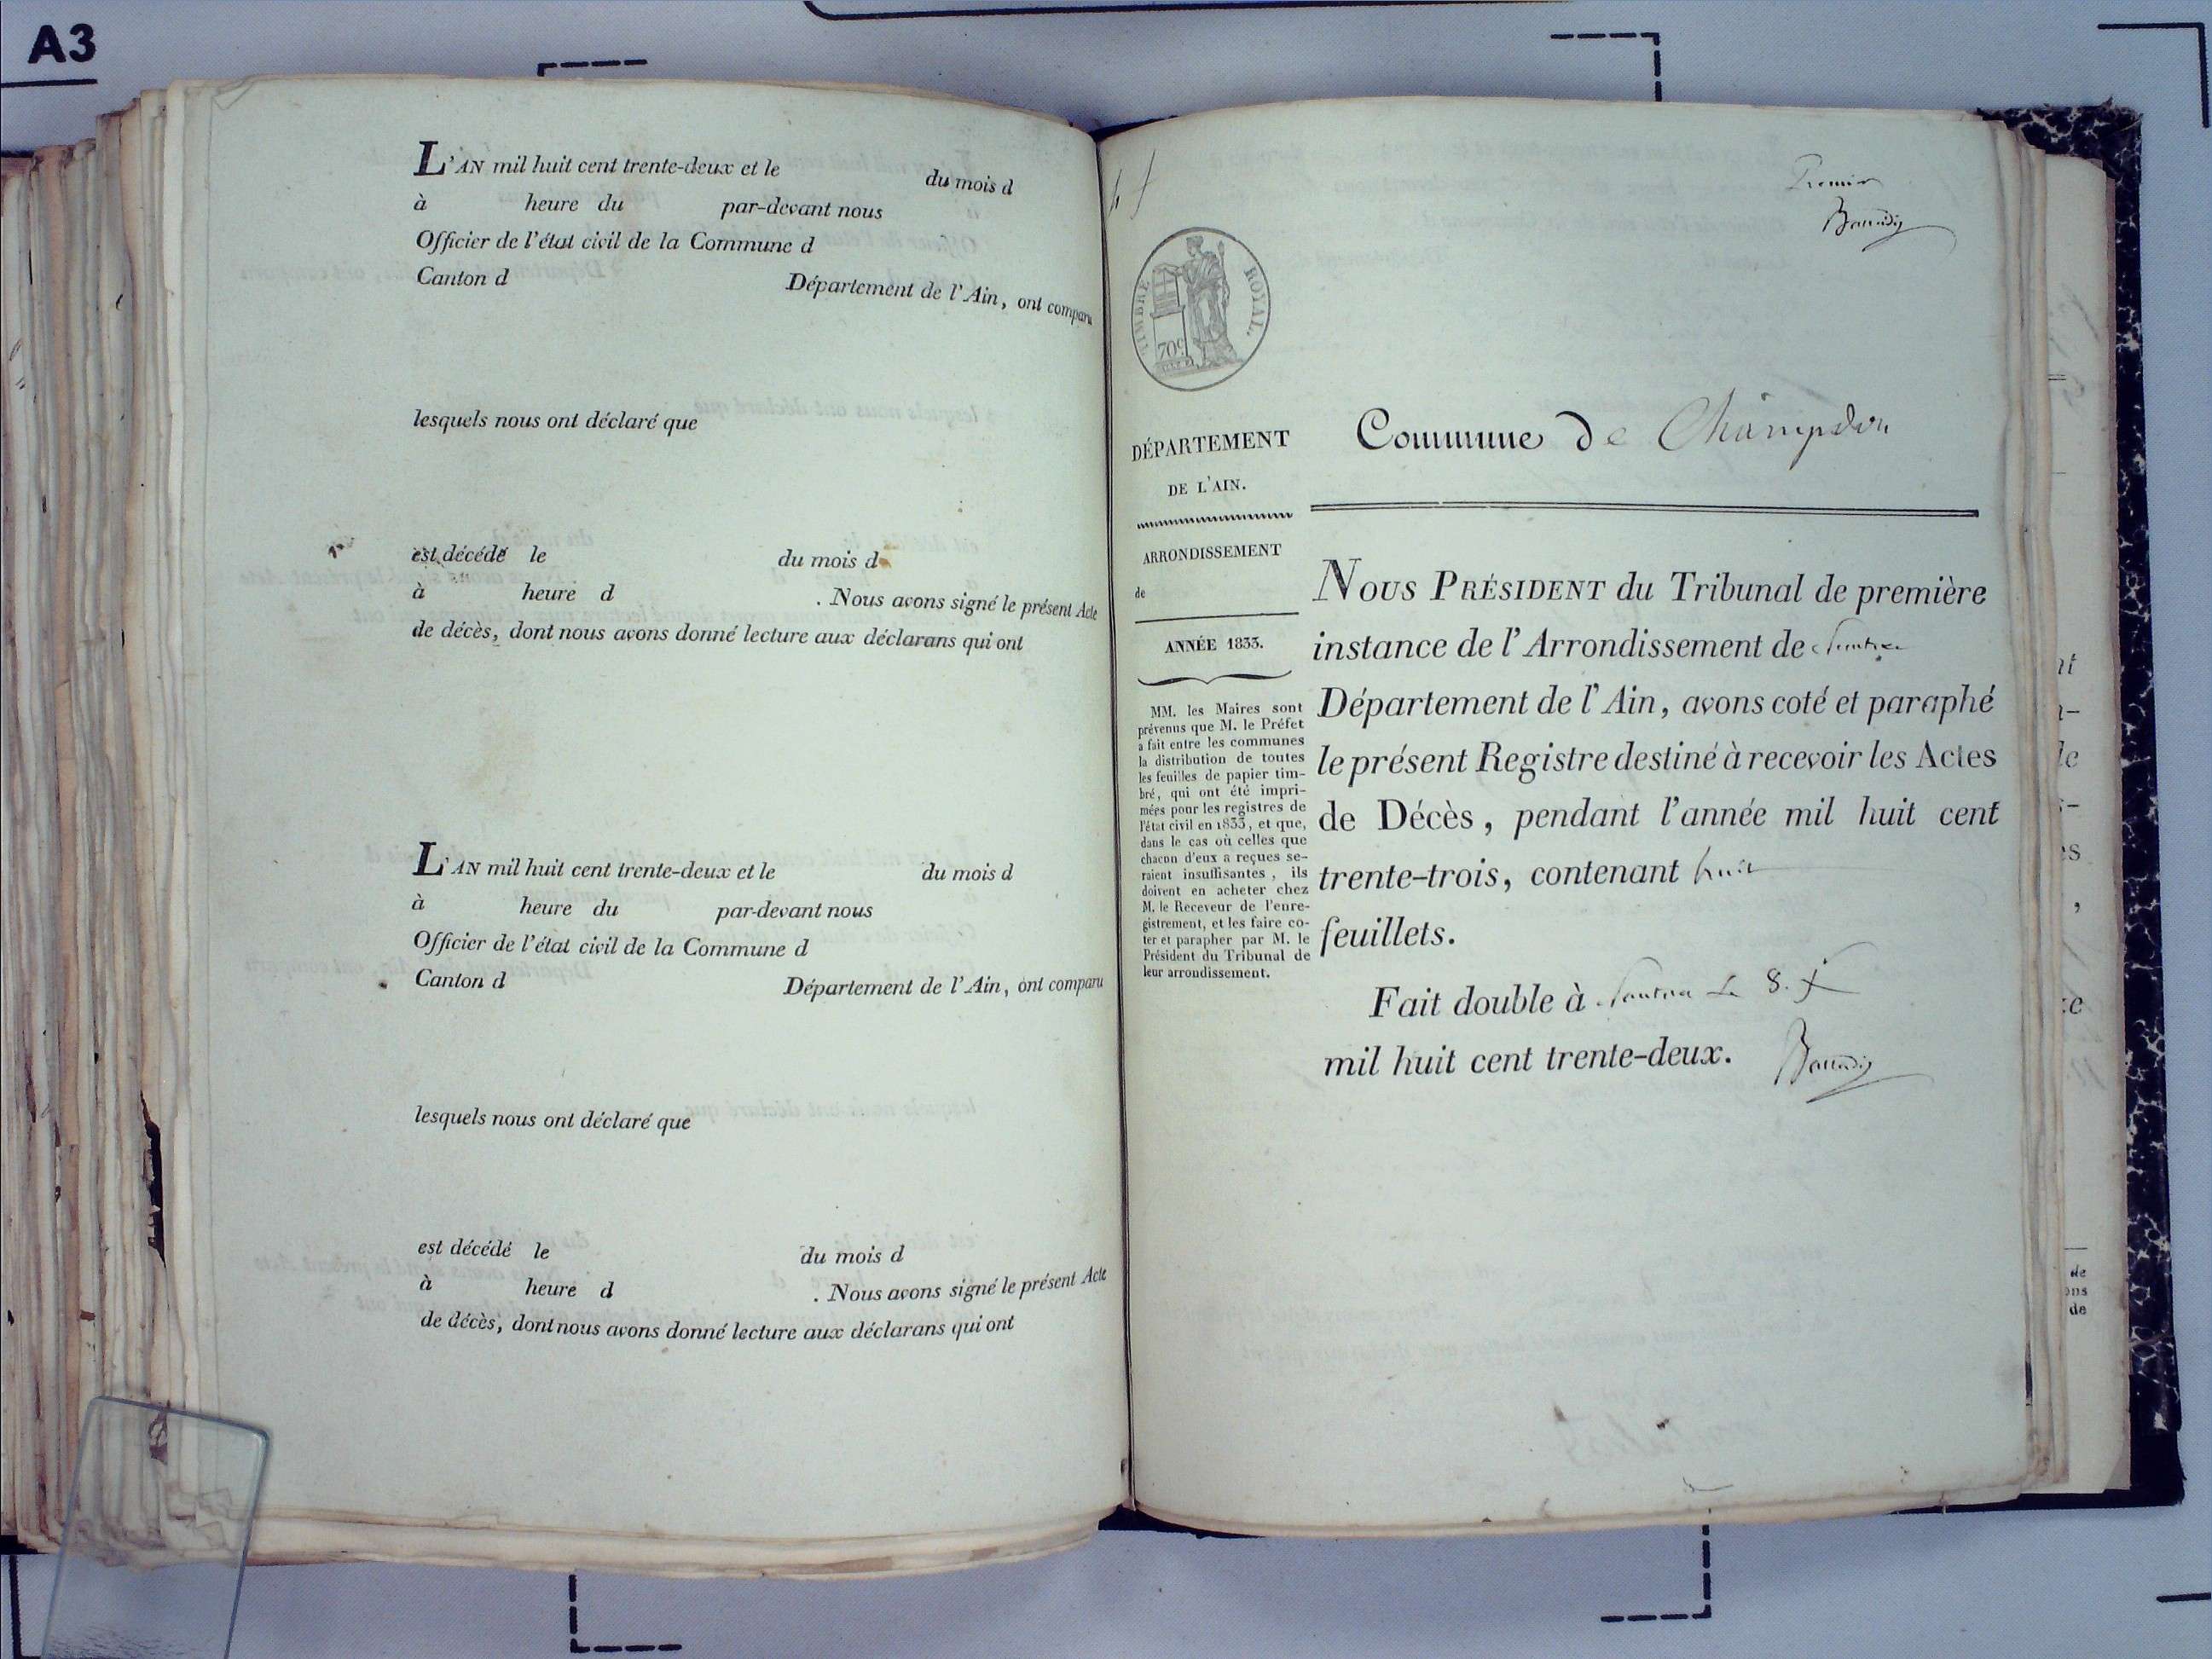 A3
L'AN mil huit cent trente-deux et le du mois d
à heure du par-devant nous
Officier de l'état civil de la Commune d
Canton d Département de l'Ain, ont comparu
lesquels nous ont déclaré que
est décédé le du mois d
à heure d . Nous avons signé le présent Acte
de décès, dont nous avons donné lecture aux déclarans qui ont
L'AN mil huit cent trente-deux et le du mois d
à heure du par-devant nous
Officier de l'état civil de la Commune d
Canton d Département de l'Ain, ont comparu
lesquels nous ont déclaré que
est décédé le du mois d
à heure d . Nous avons signé le présent Acte
de décès, dont nous avons donné lecture aux déclarans qui ont
Premier
TIMBRE ROYAL.
70c
DÉPARTEMENT
DE L'AIN.
ARRONDISSEMENT
de
ANNÉE 1833.
MM. les Maires sont
prévenus que M. le Préfet
a fait entre les communes
la distribution de toutes
les feuilles de papier tim-
bré, qui ont été impri-
mées pour les registres de
l'état civil en 1833, et que,
dans le cas où celles que
chacun d'eux a reçues se-
raient insuffisantes, ils
doivent en acheter chez
M. le Receveur de l'enre-
gistrement, et les faire co-
ter et parapher par M. le
Président du Tribunal de
leur arrondissement.
Commune de Champdor
NOUS PRÉSIDENT du Tribunal de première
instance de l'Arrondissement de Nantua
Département de l'Ain, avons coté et paraphé
le présent Registre destiné à recevoir les Actes
de Décès, pendant l'année mil huit cent
trente-trois, contenant huit
feuillets.
Fait double à Nantua le 8. X
mil huit cent trente-deux.